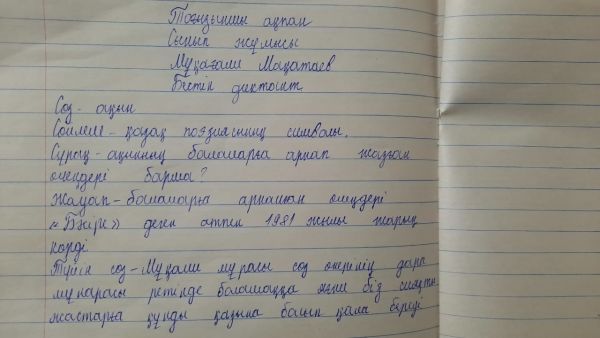 Тоғызыншы ақпан
Сынып жұмысы
Мұқағали Мақатаев
Бестік диктант
Сөз - ақын
Сөйлем - қазақ поэзиясының символы.
Сұрақ - ақынның балаларға арнап жазған
өлеңдері барма?
Жауап - балаларға арналған өлеңдері
«Бәйге» деген атпен 1981 жылы жарық
көрді
Түйін сөз - Мұқағали мұрасы сөз өнерінің дара
мұнарасы ретінде болашаққа және біз сияқты
жастарға құнды қазына болып қала береді